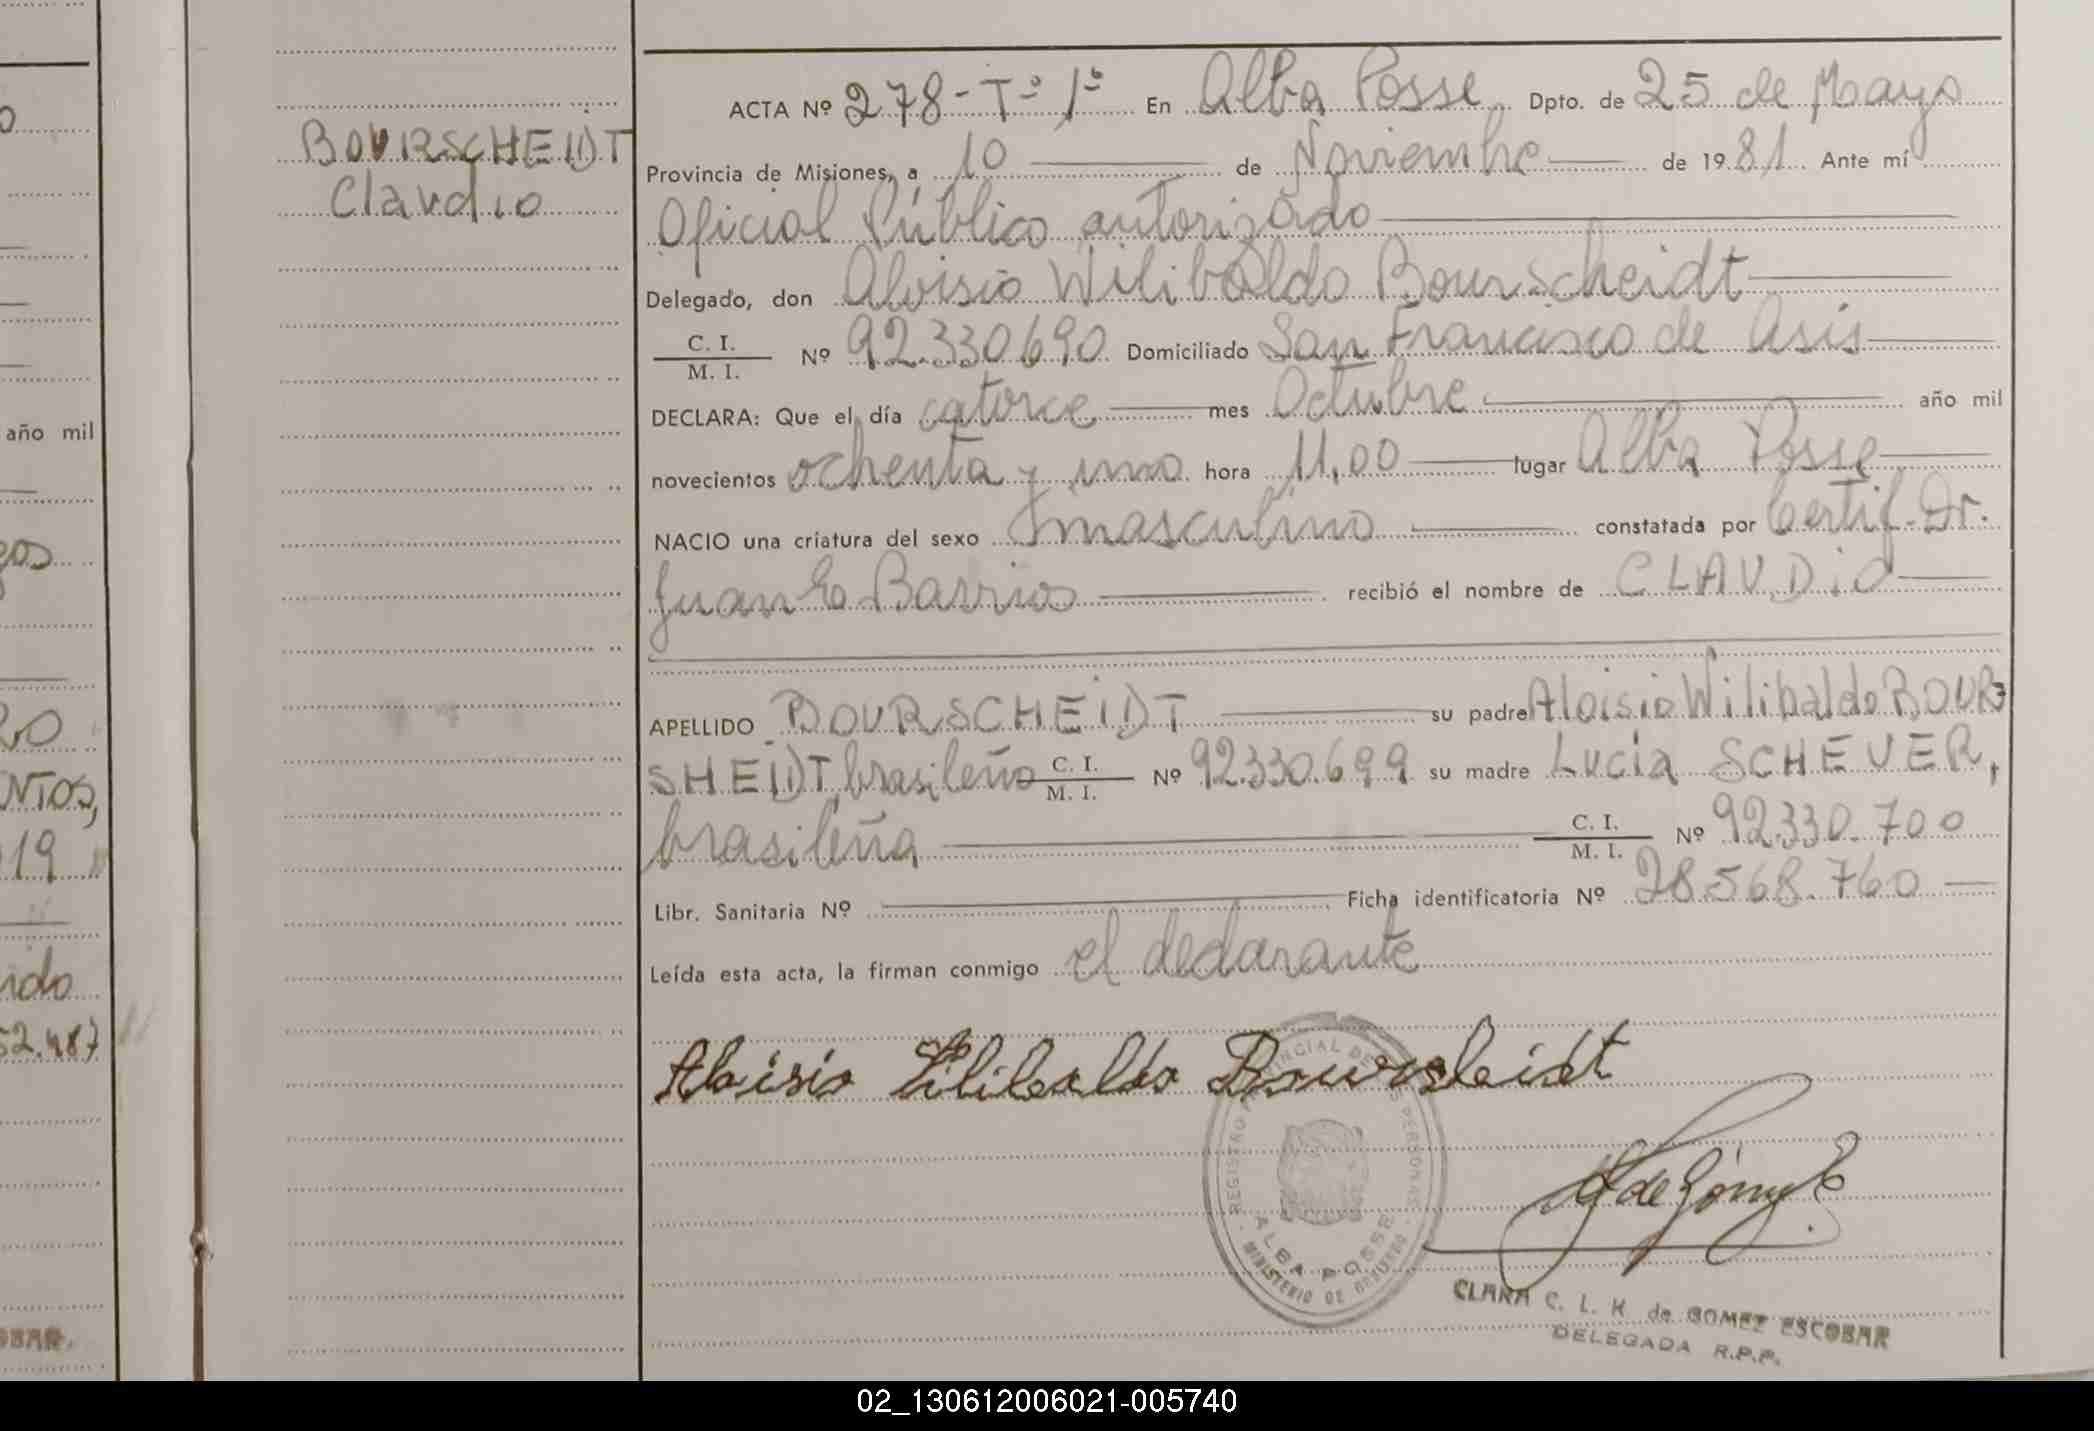 BOURSCHEIDT
Claudio
ACTA Nº 278 - Tº 1º En Alba Posse Dpto. de 25 de Mayo
Provincia de Misiones, a 10 de Noviembre de 1981 Ante mí
Oficial Público autorizado
Delegado, don Aloisio Wilibaldo Bourscheidt
C. I.
M. I. Nº 92.330.690 Domiciliado San Francisco de Asis
DECLARA: Que el día catorce mes Octubre año mil
novecientos ochenta y uno hora 11,00 lugar Alba Posse
NACIO una criatura del sexo masculino constatada por Certif. Dr.
Juan E. Barrios recibió el nombre de CLAUDiO
APELLIDO BOURSCHEIDT su padre Aloisio Wilibaldo BOUR
SHEIDT, brasileño C. I. M. I. Nº 92.330.699 su madre Lucia SCHEUER,
brasileña C. I. M. I. Nº 92.330.700
Libr. Sanitaria Nº Ficha identificatoria Nº 28.568.760
Leída esta acta, la firman conmigo el declarante
Aloisio Wilibaldo Bourscheidt
REGISTRO PROVINCIAL DE LAS PERSONAS
ALBA POSSE
MINISTERIO DE GOBIERNO
CLARA C. L. K. de GOMEZ ESCOBAR
DELEGADA R.P.P.
año mil
02_130612006021-005740